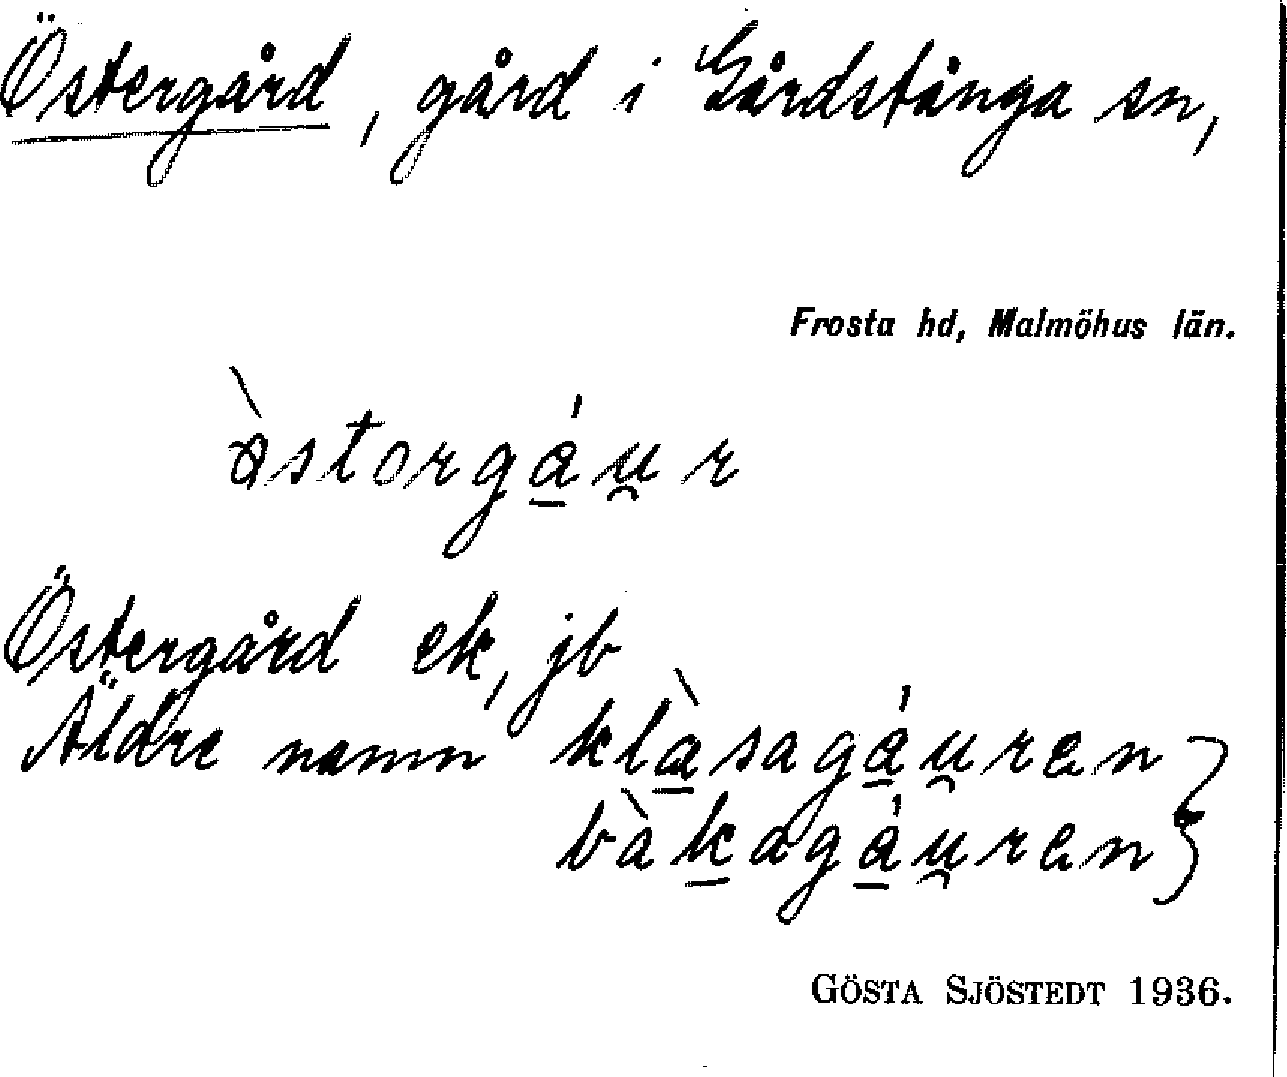 Östergård, gård i Gårdstånga sn,
Frosta hd, Malmöhus län.
ꝏ̀storgá̠u̯r
Östergård ek, jb
Äldre namn klà̠sagá̠u̯ren }
bàk̠agá̠u̯ren }
GÖSTA SJÖSTEDT 1936.